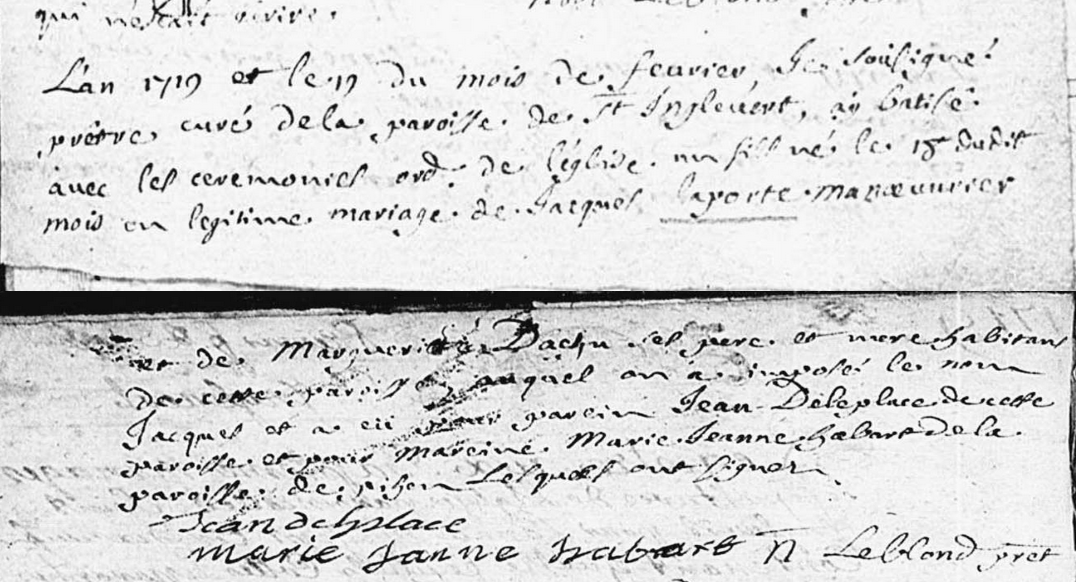 qui n'escait ecrire.
L'an 1719 et le 19 du mois de fevrier Je Soussigné
prêtre curé dela paroisse de St Inglevert, aÿ batisé
avec les ceremonies ord. de l'église un fils né le 18 dudit
mois en legitime mariage de Jacques laporte manœuvrier
et de Marguerite Dachu ses pere et mere habitans
de cette paroisse auquel on a imposé le nom
Jacques et a eü pour parein Jean Deleplace de cette
paroisse et pour mareine Marie Jeanne habart de la
paroisse de pihen Lesquels ont signer
Jean deleplace
marie Janne habart N Leblond pret